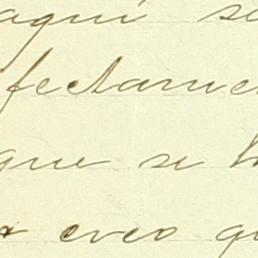 aqui se
fectamen
que se h
creo qu